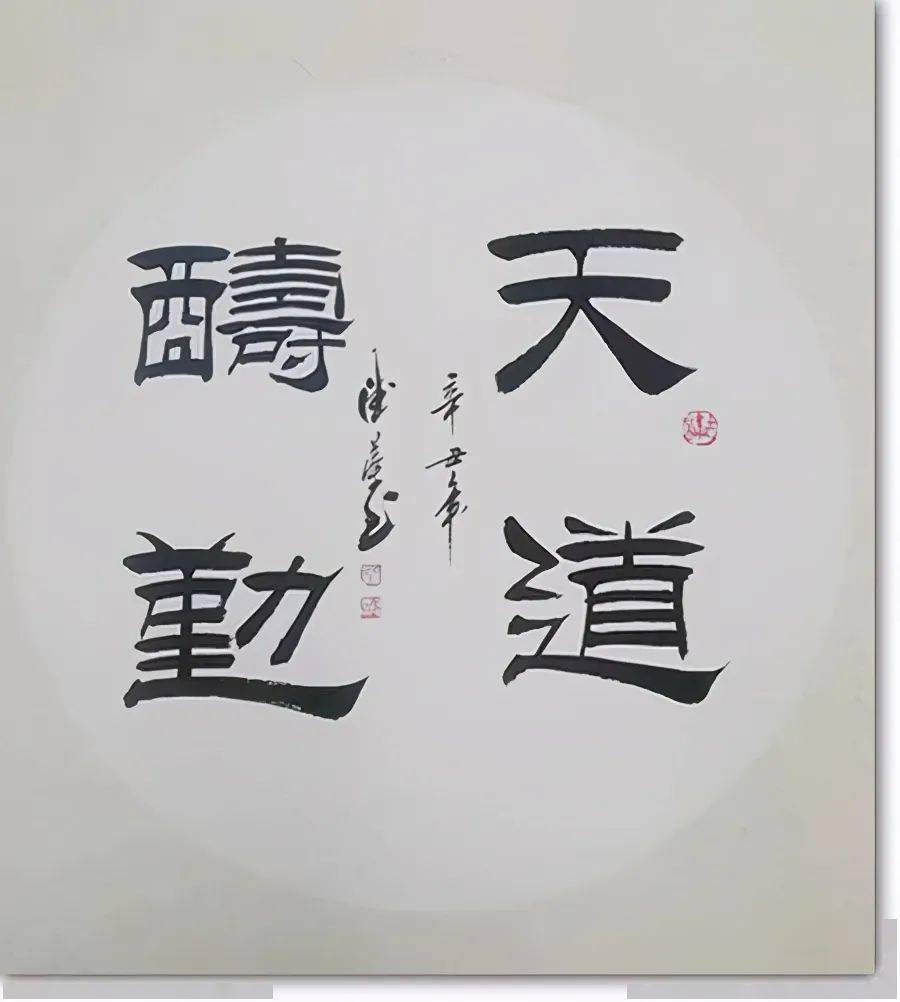 天道
醻勤
辛丑年